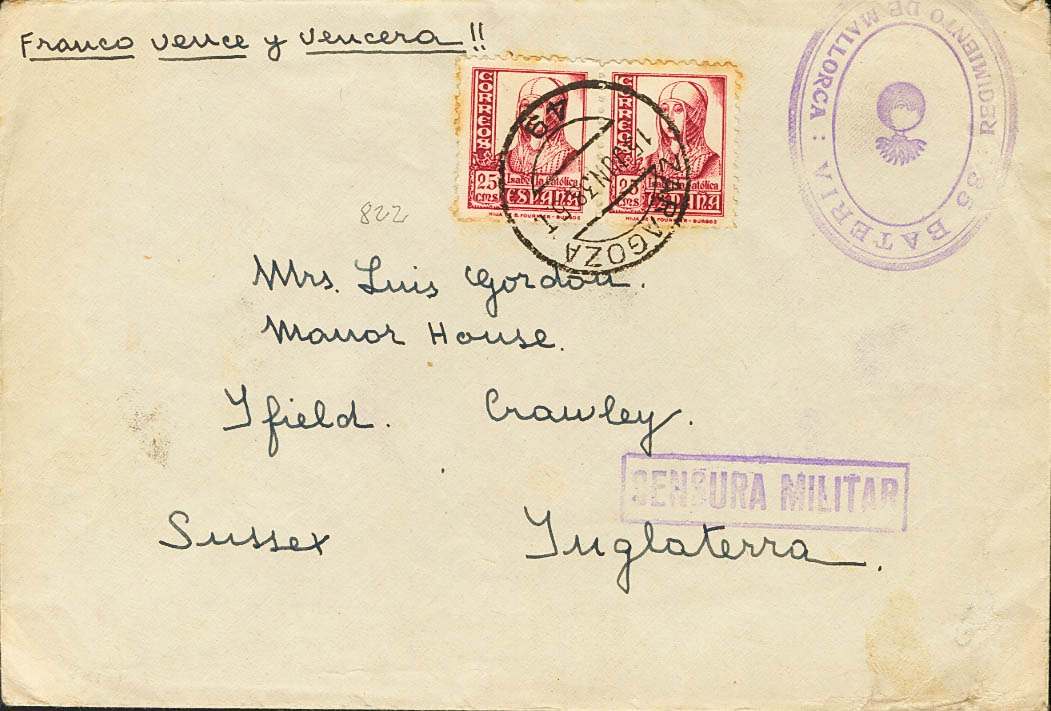 Franco vence y vencera !!
CORREOS
CORREOS
25 cms
Isabel la Católica
ESPAÑA
HIJA DE B. FOURNIER - BURGOS
25 cms
Isabel la Católica
ESPAÑA
HIJA DE B. FOURNIER - BURGOS
ZARAGOZA
49
REGIMIENTO DE MALLORCA : 35 BATERIA
822
Mrs. Luis Gordon.
Manor House.
Ifield. Crawley.
CENSURA MILITAR
Sussex Inglaterra.